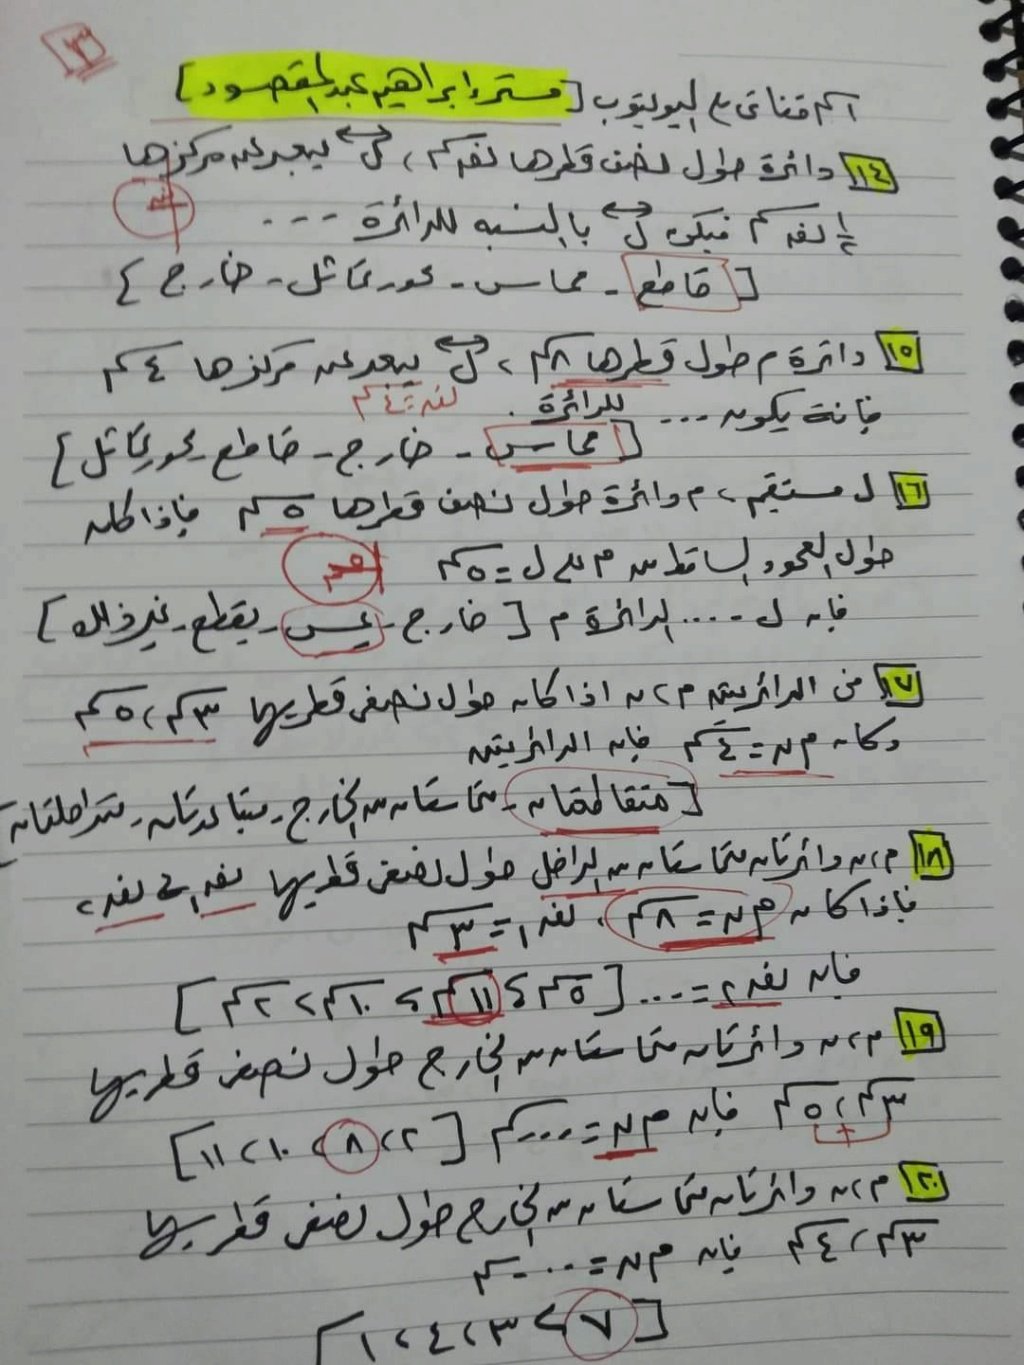 ٣
اسم قناتي ع اليوتيوب [مستر/ ابراهيم عبدالمقصود]
١٤ دائرة طول نصف قطرها نفه سم، ل يبعد عن مركزها
½ نفه سم فيكون ل بالنسبه للدائرة ...
[قاطع - مماس - محور تماثل - خارج]
١٥ دائرة م طول قطرها ٨ سم، ل يبعد عن مركزها ٤ سم
نفه = ٤ سم
فإنة يكون ... للدائرة .
[مماس - خارج - قاطع - محور تماثل]
١٦ ل مستقيم، م دائرة طول نصف قطرها ٥ سم فإذا كان
طول العمود الساقط من م على ل = ٥ سم
فإن ل .... الدائرة م [خارج - يمس - يقطع - غير ذلك]
١٧ في الدائرتين م، ن اذا كان طول نصفى قطريهما ٣ سم، ٥ سم
وكان م ن = ٤ سم فإن الدائرتين
[متقاطعتان - متماستان من الخارج - متباعدتان - متداخلتان]
١٨ م، ن دائرتان متماستان من الداخل طول نصفى قطريهما نفه١، نفه٢،
فإذا كان م ن = ٨ سم، نفه١ = ٣ سم
فإن نفه٢ = .... [٥ سم، ١١ سم، ١٠ سم، ٢ سم]
١٩ م، ن دائرتان متماستان من الخارج طول نصفى قطريهما
٣ سم، ٥ سم فإن م ن = .... سم [٢، ٨، ١٠، ١١]
+
٢٠ م، ن دائرتان متماستان من الخارج طول نصفى قطريهما
٣ سم، ٤ سم فإن م ن = .... سم
[٧، ٣، ٤، ١]